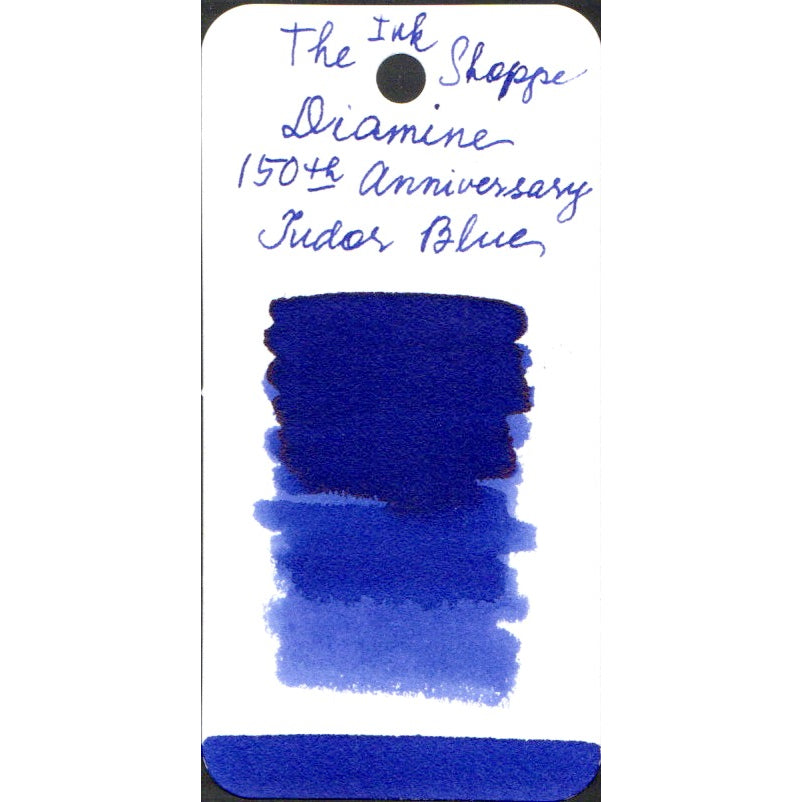 The Ink Shoppe
Diamine
150th Anniversary
Tudor Blue